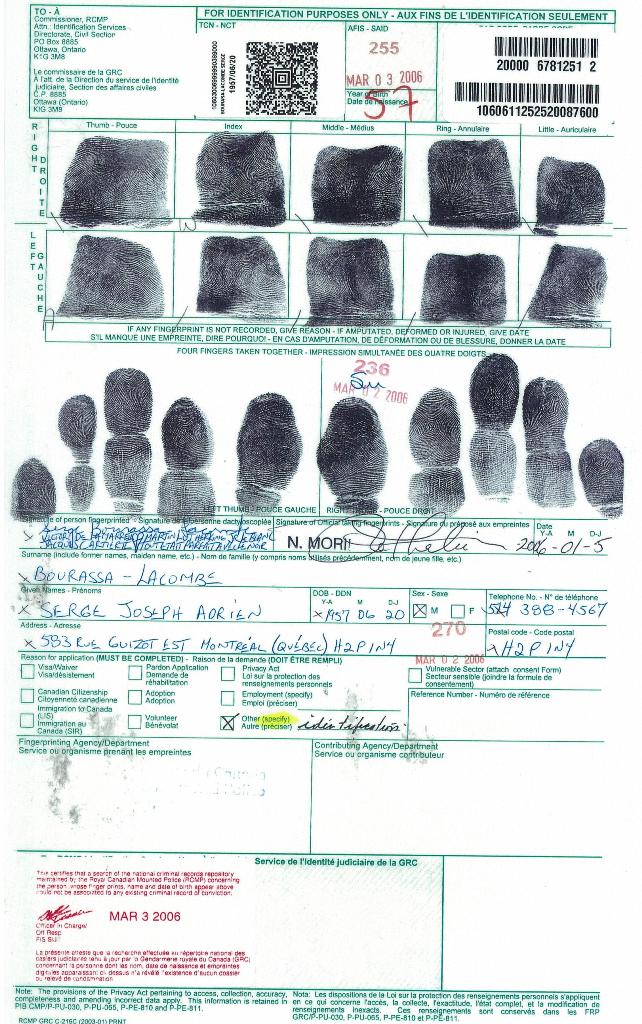 TO - À
Commissioner, RCMP
Attn.: Identification Services
Directorate, Civil Section
PO Box 8885
Ottawa, Ontario
K1G 3M8
Le commissaire de la GRC
À l'att. de la Direction du service de l'identité
judiciaire, Section des affaires civiles
C.P. 8885
Ottawa (Ontario)
K1G 3M8
FOR IDENTIFICATION PURPOSES ONLY - AUX FINS DE L'IDENTIFICATION SEULEMENT
TCN - NCT
1957/06/20
AFIS - SAID
255
MAR 03 2006
Year of Birth
Date de naissance
57
20000 6781251 2
1060611252520087600
Thumb - Pouce Index Middle - Médius Ring - Annulaire Little - Auriculaire
RIGHT DROITE
LEFT GAUCHE
IF ANY FINGERPRINT IS NOT RECORDED, GIVE REASON - IF AMPUTATED, DEFORMED OR INJURED, GIVE DATE
S'IL MANQUE UNE EMPREINTE, DIRE POURQUOI - EN CAS D'AMPUTATION, DE DÉFORMATION OU DE BLESSURE, DONNER LA DATE
FOUR FINGERS TAKEN TOGETHER - IMPRESSION SIMULTANÉE DES QUATRE DOIGTS
236
MAR 02 2006
LEFT THUMB - POUCE GAUCHE RIGHT THUMB - POUCE DROIT
Signature of person fingerprinted - Signature de la personne dactyloscopiée
Signature of Official taking fingerprints - Signature du préposé aux empreintes
Date
Y-A M D-J
N. MORIN
2006-01-5
Surname (include former names, maiden name, etc.) - Nom de famille (y compris noms utilisés précédemment, nom de jeune fille, etc.)
x BOURASSA - LACOMBE
Given Names - Prénoms
x SERGE JOSEPH ADRIEN
DOB - DDN
Y-A M D-J
x 1957 06 20
Sex - Sexe
M F
Telephone No. - N° de téléphone
514 388-4567
Address - Adresse
x 583 RUE GUIZOT EST MONTRÉAL (QUÉBEC) H2P 1N4
270
MAR 02 2006
Postal code - Code postal
x H2P 1N4
Reason for application (MUST BE COMPLETED) - Raison de la demande (DOIT ÊTRE REMPLI)
Visa/Waiver
Visa/désistement
Pardon Application
Demande de réhabilitation
Privacy Act
Loi sur la protection des renseignements personnels
Vulnerable Sector (attach consent Form)
Secteur sensible (joindre la formule de consentement)
Canadian Citizenship
Citoyenneté canadienne
Adoption
Adoption
Employment (specify)
Emploi (préciser)
Reference Number - Numéro de référence
Immigration to Canada (LIS)
Immigration au Canada (SIR)
Volunteer
Bénévolat
Other (specify)
Autre (préciser)
identification
Fingerprinting Agency/Department
Service ou organisme prenant les empreintes
Contributing Agency/Department
Service ou organisme contributeur
Service de l'identité judiciaire de la GRC
This certifies that a search of the national criminal records repository
maintained by the Royal Canadian Mounted Police (RCMP) concerning
the person whose finger prints, name and date of birth appear above
could not be associated to any existing criminal record of conviction.
MAR 3 2006
Officer in Charge/
Off Resp
La présente atteste que la recherche effectuée au répertoire national des
casiers judiciaires tenu à jour par la Gendarmerie royale du Canada (GRC)
concernant la personne dont les nom, date de naissance et empreintes
digitales apparaissent ci-dessus n'a révélé l'existence d'aucun dossier
ou relevé de condamnation.
Note: The provisions of the Privacy Act pertaining to access, collection, accuracy,
completeness and amending incorrect data apply. This information is retained in
PIB CMP/P-PU-030, P-PU-065, P-PE-810 and P-PE-811.
Nota: Les dispositions de la Loi sur la protection des renseignements personnels s'appliquent
en ce qui concerne l'accès, la collecte, l'exactitude, l'état complet, et la modification de
renseignements inexacts. Ces renseignements sont conservés dans les FRP
GRC/P-PU-030, P-PU-065, P-PE-810 et P-PE-811.
RCMP GRC C-216C (2003-01) PRNT